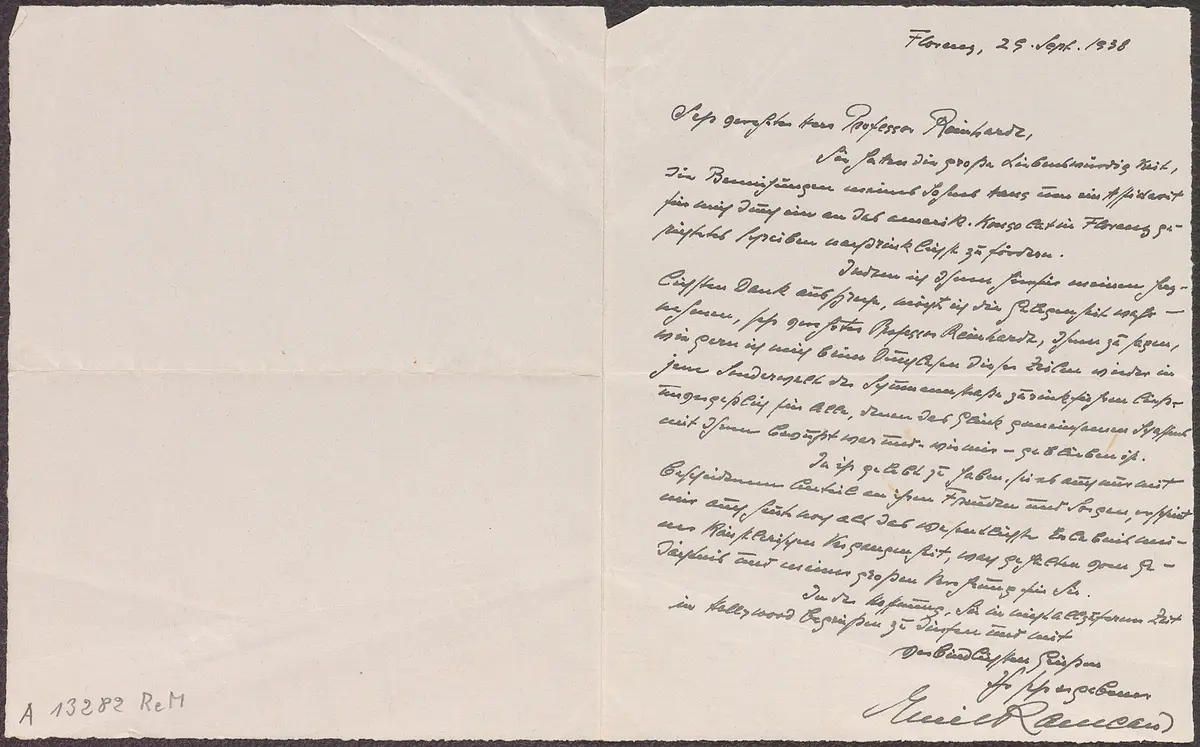 Florenz, 29. Sept. 1938
Sehr geehrter Herr Professor Reinhardt,
Sie hatten die große Liebenswürdigkeit,
die Bemühungen meines Sohnes Hans um ein Affidavit
für mich durch ein an das amerik. Konsolat in Florenz ge-
richtetes Schreiben nachdrücklichst zu fördern.
Indem ich Ihnen hierfür meinen herz-
lichsten Dank ausspreche, möcht ich die Gelegenheit wahr-
nehmen, sehr verehrter Professor Reinhardt, Ihnen zu sagen,
wie gern ich mich beim Durchlesen dieser Zeilen wieder in
jene Sonderwelt der Schumannstraße zurückführen ließ-
unvergeßlich für Alle, denen das Glück gemeinsamen Schaffens
mit Ihnen bewußt war und - wie mir - geblieben ist.
In ihr gelebt zu haben, sei es auch nur mit
bescheidenem Anteil an ihren Freuden und Sorgen,
mir auch heute noch als das wesentlichste Erlebnis mei-
ner künstlerischen Vergangenheit, wach gehalten vom Ge-
dächtnis und meiner großen Verehrung für Sie.
In der Hoffnung, Sie in nicht allzuferner Zeit
in Hollywood begrüßen zu dürfen und mit
verbindlichsten Grüßen
Ihr sehr ergebener
Emil
A 13282 ReM